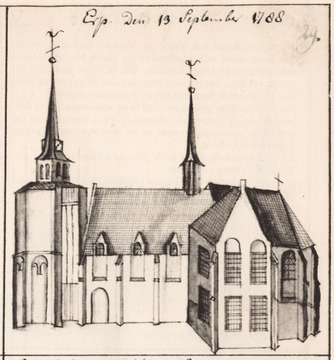 Erp. Den 13 September 1788